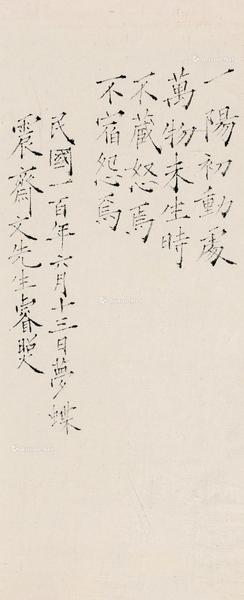 一陽初動處
萬物未生時
不藏怒焉
不宿怨焉
民國一百年六月十三日夢蝶
震齋文先生睿照